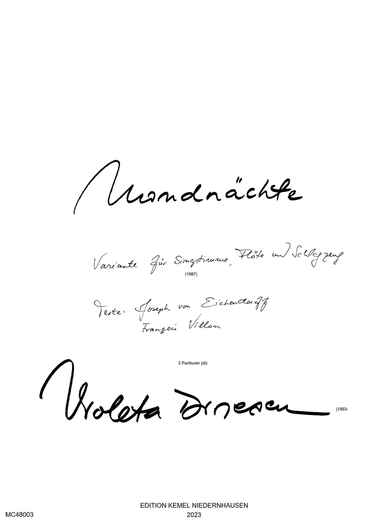 Mondnächte
Variante für Singstimme, Flöte und Schlagzeug
(1987)
Texte: Joseph von Eichendorff
François Villon
3 Partituren (dt)
Violeta Dinescu
(1953-
EDITION KEMEL NIEDERNHAUSEN
MC48003
2023